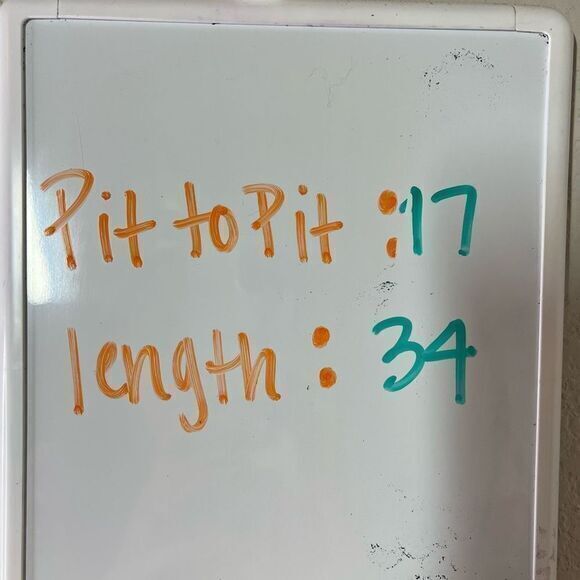 Pit to Pit : 17
length : 34